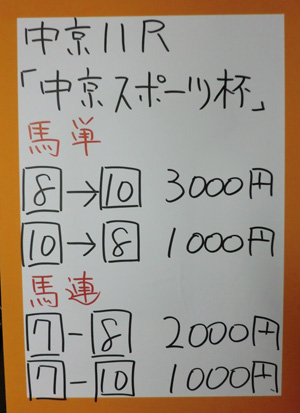 中京11R
「中京スポーツ杯」
馬単
8→10 3000円
10→8 1000円
馬連
7-8 2000円
7-10 1000円